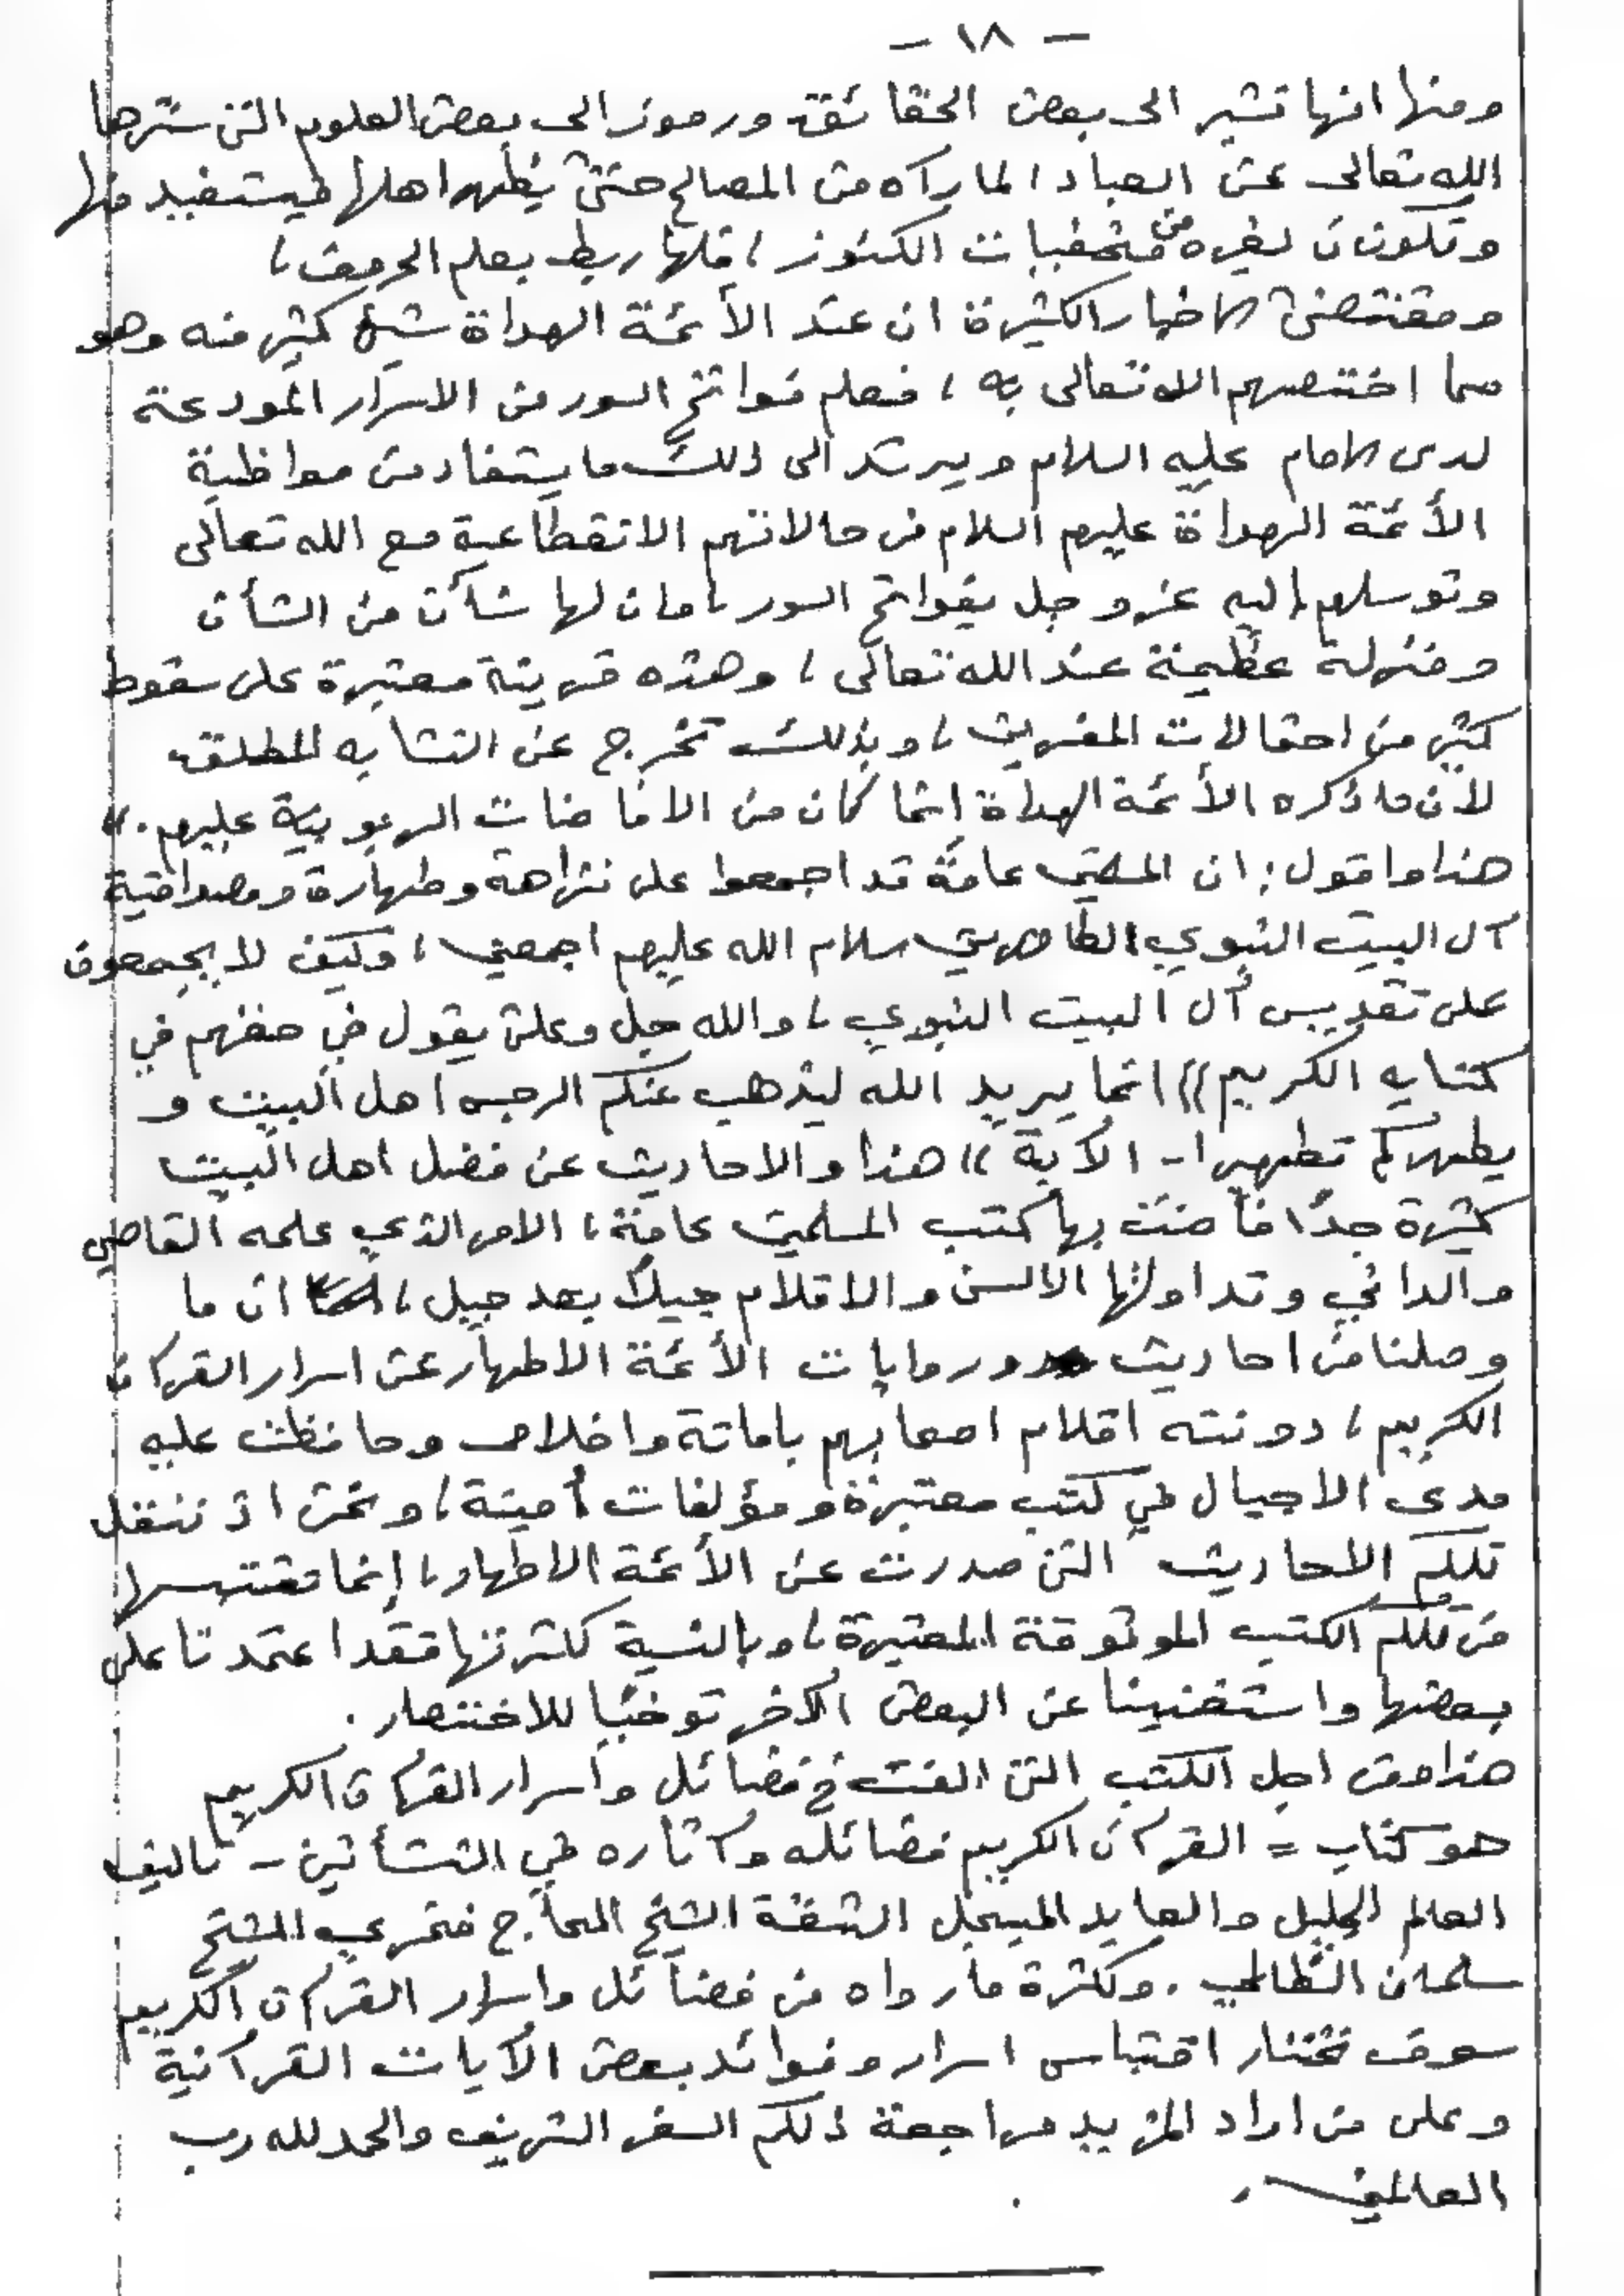 - ١٨ -
ومنها انها تشير الى بعض الحقائق ورموز الى بعض العلوم التى سترها
الله تعالى عن العباد لما رآه من المصالح حتى يُظهر اهلها فيستفيد منها
وتكون لغيره من مخفيات الكنوز ، فلها ربط بعلم الحروف ،
ومقتضى الاخبار الكثيرة ان عند الأئمة الهداة شيئ كثير منه وهو
مما اختصهم الله تعالى به ، فعلم فواتح السور من الاسرار المودعة
لدى الامام عليه السلام ويرشد الى ذلك ما يستفاد من مواظبة
الأئمة الهداة عليهم السلام فى حالاتهم الانقطاعية مع الله تعالى
وتوسلهم اليه عز وجل بفواتح السور ، فان لها شأن من الشأن
ومنزلة عظيمة عند الله تعالى ، وهذه قرينة معتبرة على سقوط
كثير من احتمالات المفسرين ، وبذلك تخرج عن التشابه المطلق
لأن ما ذكره الأئمة الهداة إنما كان من الافاضات الربوبية عليهم . ((
هذا واقول : ان المسلمين عامة قد اجمعوا على نزاهة وطهارة ومصداقية
آل البيت النبوي الطاهرين سلام الله عليهم اجمعين ، وكيف لا يجمعون
على تقديس آل البيت النبوي ، والله جل وعلى يقول في حقهم في
كتابه الكريم (( انما يريد الله ليذهب عنكم الرجس اهل البيت و
يطهركم تطهيرا - الآية )) هذا والاحاديث عن فضل اهل البيت
كثيرة جدًا فاضت بها كتب المسلمين عامة ، الامر الذي علمه القاصي
والداني وتداولتها الالسن والاقلام جيلاً بعد جيل ، ان ما
وصلنا من احاديث وروايات الأئمة الاطهار عن اسرار القرآن
الكريم ، دونته اقلام اصحابهم بامانة واخلاص وحافظت عليه
مدى الاجيال في كتب معتبرة ومؤلفات أمينة ، ونحن اذ ننقل
تلكم الاحاديث التى صدرت عن الأئمة الاطهار ، إنما نقتبسها
من تلكم الكتب الموثوقة المعتبرة ، وبالنسبة لكثرتها فقد اعتمدنا على
بعضها واستغنينا عن البعض الآخر توخيًا للاختصار .
هذا ومن اجل الكتب التى الفت في فضائل واسرار القرآن الكريم
هو كتاب = القرآن الكريم فضائله وآثاره في النشأتين - تاليف
العالم الجليل والعابد المبجل الثقة الشيخ الحاج فخري الشيخ
سلمان الظالمي . ولكثرة ما رواه من فضائل واسرار القرآن الكريم
سوف نختار اقتباس اسرار وفوائد بعض الآيات القرآنية
وعلى من اراد المزيد مراجعة ذلكم السفر الشريف والحمد لله رب
العالمين .